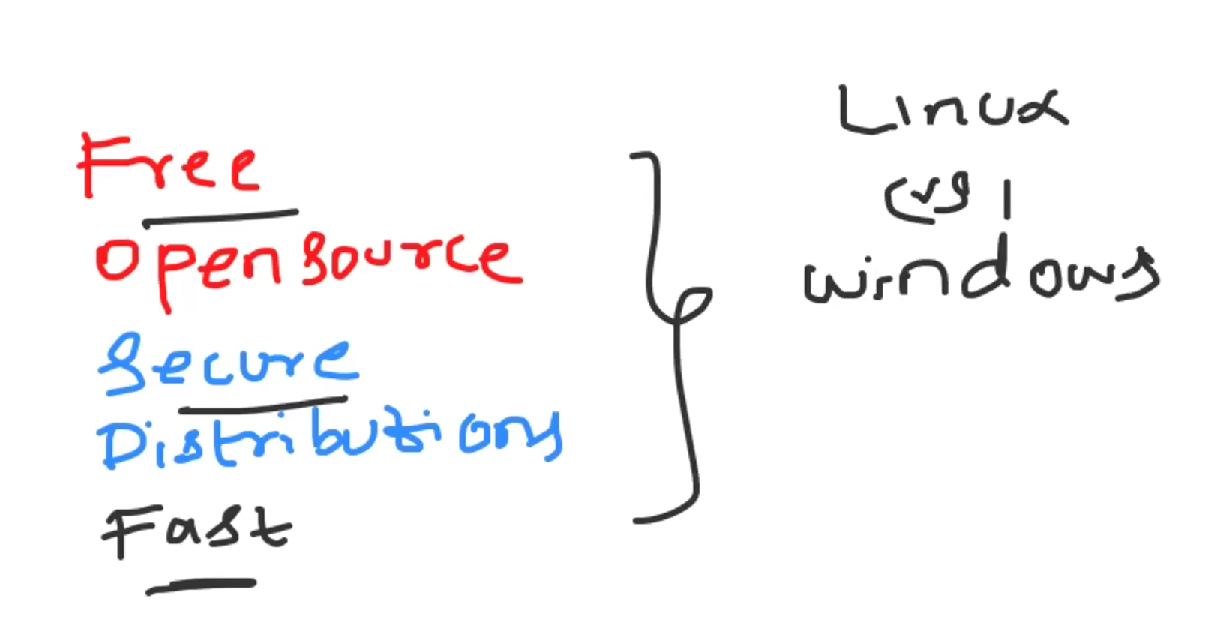 Free
Opensource
Secure
Distributions
Fast
Linux
vs
windows